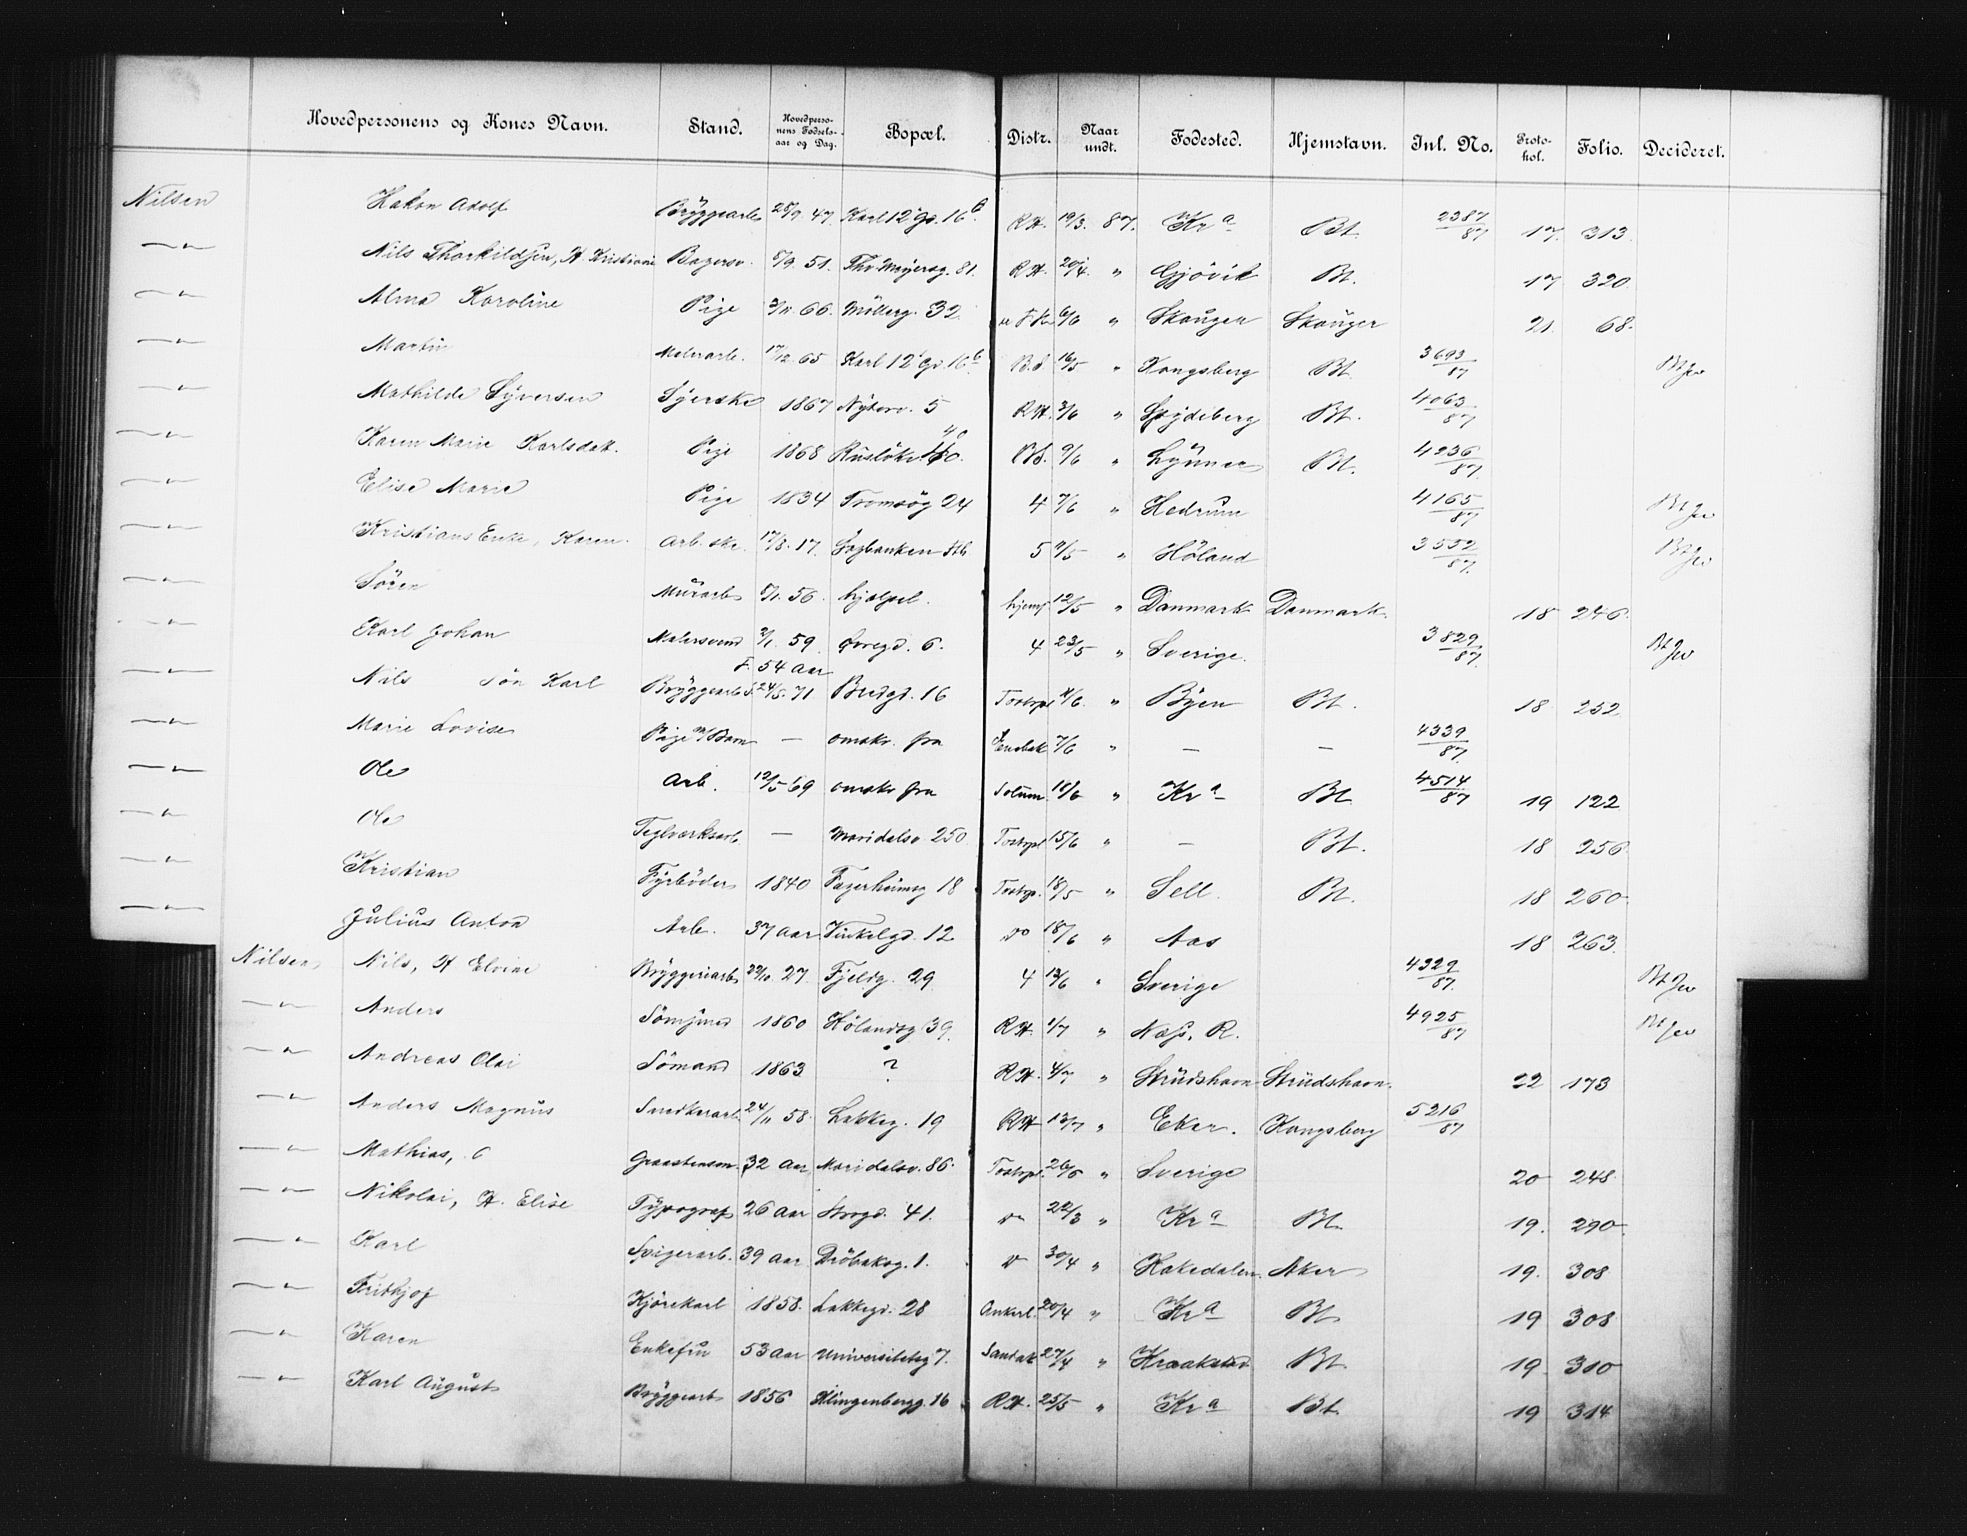 Hovedpersonens og Kones Navn. Stand. Hovedperso-nens Fødsels-aar og Dag. Bopæl. Distr. Naar undt. Fødested. Hjemstavn. Inl. No. Proto-kol. Folio. Decideret.
Nilsen Hakon Adolf Bryggearb 28/9 47 Karl 12' gd. 16 b R.H. 19/3 87. Kr a Bt. 2387/87 17. 313.
— " — Nils Thorkildsen, H Kristiane Bagersv. 5/9 51. Thv Meyersg. 81. R.H. 20/4 " Gjövik Bt. 17 320
— " — Alma Karoline Pige 3/11 66. Möllerg. 32 6/6 " Skauger Skauger 21. 68.
— " — Martin Malerarb. 17/12 65 Karl 12' gd. 16 b B.d 16/5 " Kongsberg Bt. 3693/87 Bt Jev
— " — Mathilde Syversen Syerske 1867 Nytorv. 5 R.H. 3/6 " Spydeberg Bt. 4063/87
— " — Karen Marie Karlsdat. Pige 1868 Ruslökv. 40 9/6 " Lynner Bt. 4236/87.
— " — Elise Marie Pige 1834 Tromsög 24 4 7/6 " Hedrum 4165/87 Bt Jev
— " — Kristians Enke, Karen. Arb. ske. 17/8. 17. Sagbanken 5 9/5 " Höland 3552/87. Bt Jev
— " — Sören Murarb 5/1. 56. hjælpel. hjemf 12/5 " Danmark Danmark 18 246.
— " — Karl Johan Malersvend 2/1. 59. Soregd. 6. 4 23/5 " Sverige. 3829/87 Bt Jev
F. 54 aar
— " — Nils Sön Karl Bryggearb S. 24/5. 71 Bredgd. 16 Tostrpl 4/6. " Byen Bt. 18 252
— " — Marie Lovise Pige m/Barn — omskr. fra Enebak 7/6 " — — 4339/87.
— " — Ole Arb. 12/5 69 omskr fra Solum 18/6 " Kr a Bt 4514/87 19 122
— " — Ole Teglværksarb — Maridalsv. 250 Tostrpl 15/6 " — Bt. 18 256.
— " — Kristian Fyrböder 1840 Fagerheimsg 18 Tostrp. 18/5 " Sell. Bt. 18 260.
— " — Julius Anton Arb. 37 aar Vinkelgd. 12 do 18/6 " Aas 18 263.
Nilsen Nils, H Elvine Bryggeriarb 22/10. 27 Fjeldg. 29 4 13/6 " Sverige 4329/87. Bt Jev
— " — Anders Sömand 1860 Hölandsg 39. R.H. 1/7 " Næs, R. 4925/87 Bt Jev
— " — Andreas Olai Sömand 1863 ? R.H. 4/7 " Strüdshavn Strüdshavn. 22 173
— " — Anders Magnus Snedkerarb 24/11 58. Lakkeg. 19 R.H 13/7 " Eker. Kongsberg 5216/87
— " — Mathias, C Graastensm. 32 aar Maridalsv. 86. Tostrpl. 26/5 " Sverige 20 248.
— " — Nikolai, H. Elise Typograf 26 aar Storgd. 41. do 22/3 " Kr a Bt. 19. 290.
— " — Karl Spigerarb. 39 aar Dröbaksg. 1. do 30/4 " Hakedalen. Aker 19. 308
— " — Fritjof Kjörekarl 1858. Lakkegd. 28 Ankerl. 20/4 " Kr a Bt 19 308
— " — Karen Enkefru 53 aar Universitetsg 7. Sandak 27/4 " Kraakstad Bt. 19. 310
— " — Karl August Bryggearb 1856 Klingenbergg. 16 R.H. 25/5 " Kr a Bt. 19 314